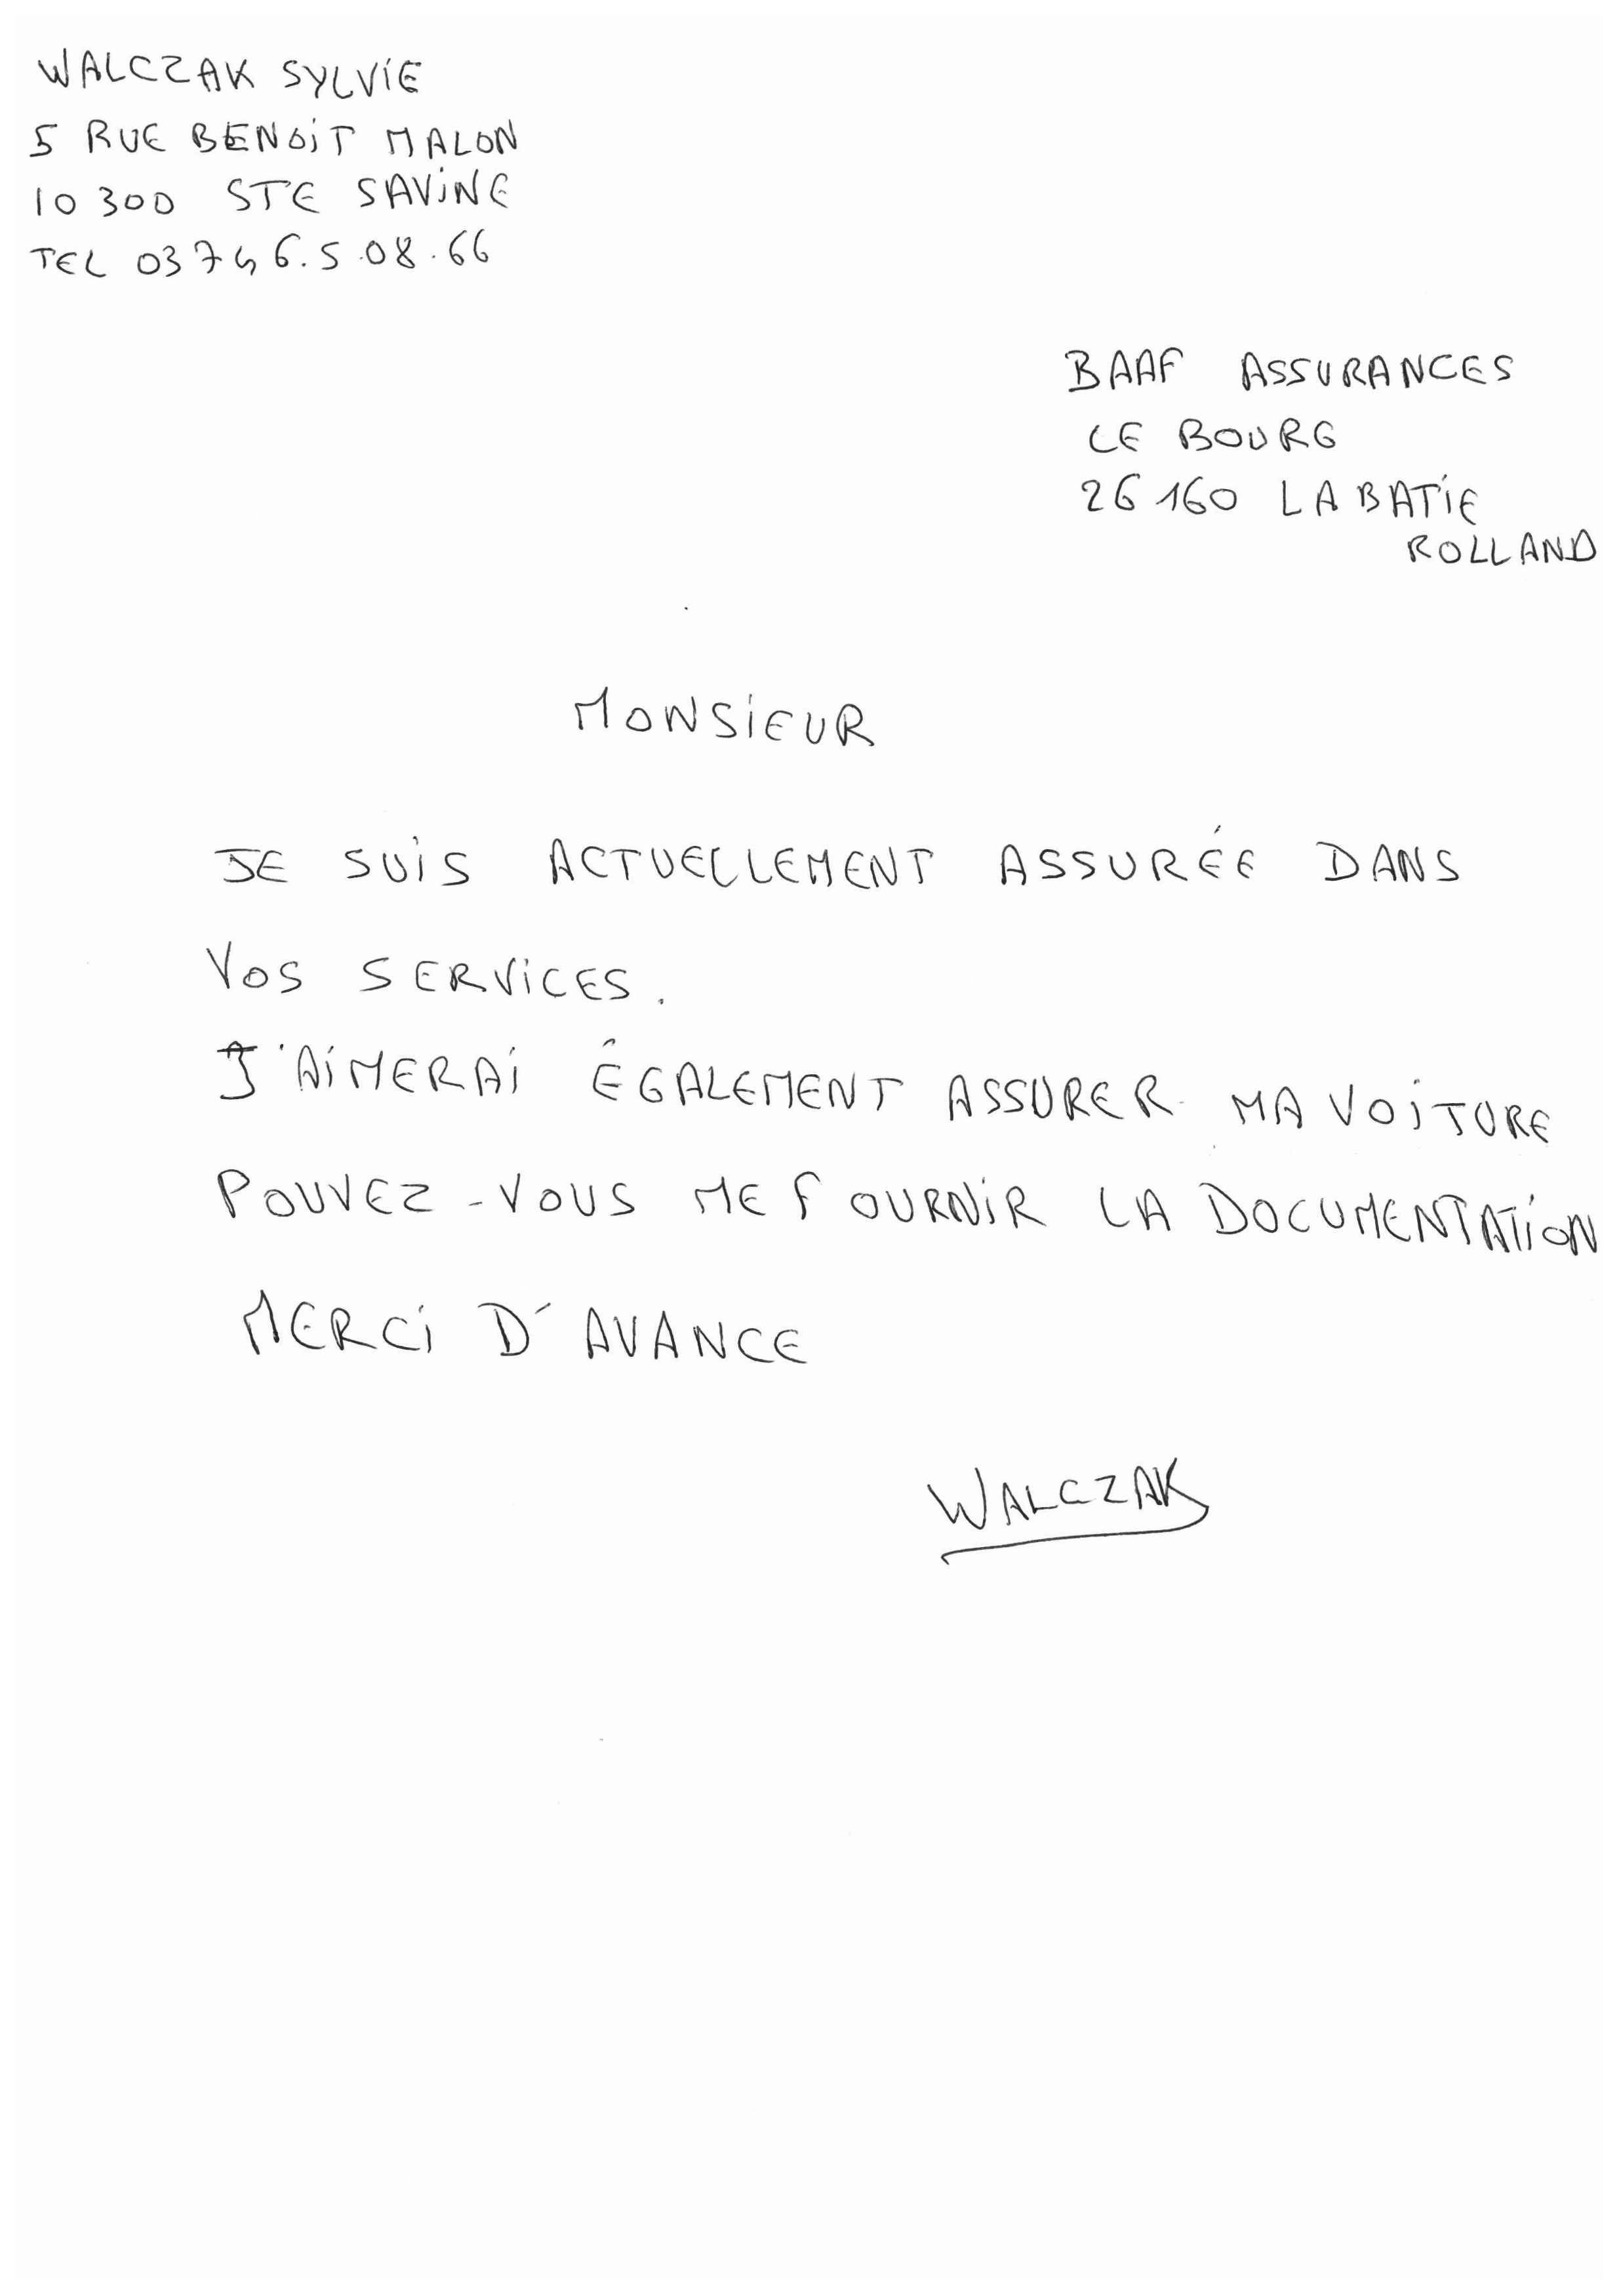 WALCZAK SYLVIE
5 RUE BENOIT MALON
10 300 STE SAVINE
TEL 03 74 6.5.08.66
BAAF ASSURANCES
LE BOURG
26 160 LA BATIE
ROLLAND
MONSIEUR
JE SUIS ACTUELLEMENT ASSURÉE DANS
VOS SERVICES.
J'AIMERAI ÉGALEMENT ASSURER MA VOITURE
POUVEZ-VOUS ME FOURNIR LA DOCUMENTATION
MERCI D'AVANCE
WALCZAK